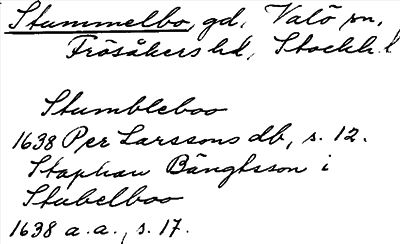 Stummelbo, gd, Valö sn,
Frösåkers hd, Stockh. l
Stumbleboo
1638 Per Larssons db, s. 12.
Staphan Bängtsson i
Stubelboo
1638 a. a., s. 17.